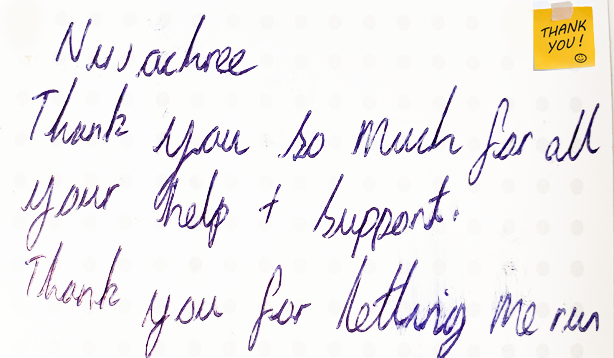 THANK
YOU!
Thank you so much for all
your help + support.
Thank you for letting me run